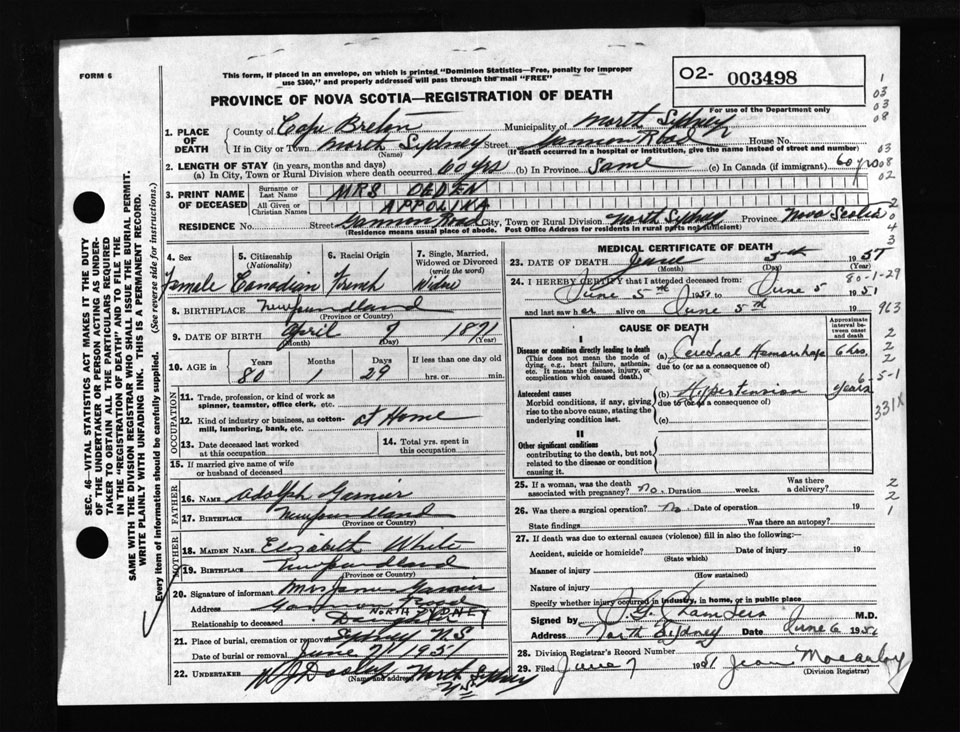 FORM 6
This form, if placed in an envelope, on which is printed "Dominion Statistics—Free, penalty for improper
use $300," and properly addressed will pass through the mail "FREE"
O2- 003498
For use of the Department only
PROVINCE OF NOVA SCOTIA—REGISTRATION OF DEATH
1. PLACE OF DEATH County of Cape Breton Municipality of North Sydney
If in City or Town North Sydney Street Road House No.
(Name) (If death occurred in a hospital or institution, give the name instead of street and number)
2. LENGTH OF STAY (in years, months and days)
(a) In City, Town or Rural Division where death occurred 60 yrs (b) In Province Same (c) In Canada (if immigrant) 60 yrs
3. PRINT NAME OF DECEASED Surname or Last Name MRS
All Given or Christian Names APPOLINA
RESIDENCE No. Street Gannon Road City, Town or Rural Division North Sydney Province Nova Scotia
(Residence means usual place of abode. Post Office Address for residents in rural parts not sufficient)
4. Sex 5. Citizenship (Nationality) 6. Racial Origin 7. Single, Married, Widowed or Divorced (write the word)
Female Canadian French Widow
8. BIRTHPLACE Newfoundland
(Province or Country)
9. DATE OF BIRTH April 7 1871
(Month) (Day) (Year)
10. AGE in Years Months Days If less than one day old
80 1 29 hrs. or min.
OCCUPATION
11. Trade, profession, or kind of work as
spinner, teamster, office clerk, etc.
12. Kind of industry or business, as cotton-
mill, lumbering, bank, etc. at Home
13. Date deceased last worked
at this occupation
14. Total yrs. spent in
this occupation
15. If married give name of wife
or husband of deceased
FATHER
16. NAME Adolph Garnier
17. BIRTHPLACE Newfoundland
(Province or Country)
MOTHER
18. MAIDEN NAME Elizabeth White
19. BIRTHPLACE Newfoundland
(Province or Country)
20. Signature of informant Mrs James Garnier
Address Gannon Road
NORTH SYDNEY
Relationship to deceased Daughter
21. Place of burial, cremation or removal Sydney N.S
Date of burial or removal June 7/1951
22. UNDERTAKER North Sydney
(Name and address) N.S
MEDICAL CERTIFICATE OF DEATH
23. DATE OF DEATH June 5th 1951
(Month) (Day) (Year)
24. I HEREBY CERTIFY that I attended deceased from:
June 5th 1951 to June 5 1951
and last saw her alive on June 5th 19
CAUSE OF DEATH
Approximate interval between onset and death
I
Disease or condition directly leading to death
(This does not mean the mode of
dying, e.g., heart failure, asthenia,
etc. It means the disease, injury, or
complication which caused death.)
(a) Cerebral Hemorrhage 6 hrs.
due to (or as a consequence of)
Antecedent causes
Morbid conditions, if any, giving
rise to the above cause, stating the
underlying condition last.
(b) Hypertension years
due to (or as a consequence of)
(c)
II
Other significant conditions
contributing to the death, but not
related to the disease or condition
causing it.
25. If a woman, was the death
associated with pregnancy? No. Duration weeks. Was there a delivery?
26. Was there a surgical operation? No Date of operation 19
State findings Was there an autopsy?
27. If death was due to external causes (violence) fill in also the following:—
Accident, suicide or homicide? Date of injury 19
(State which)
Manner of injury
(How sustained)
Nature of injury
Specify whether injury occurred in industry, in home, or in public place
Signed by Saunders M.D.
Address North Sydney Date June 6 1951
28. Division Registrar's Record Number
29. Filed June 7 1951 Jean
(Division Registrar)
SEC. 46—VITAL STATISTICS ACT MAKES IT THE DUTY
OF THE UNDERTAKER OR PERSON ACTING AS UNDER-
TAKER TO OBTAIN ALL THE PARTICULARS REQUIRED
IN THE "REGISTRATION OF DEATH" AND TO FILE THE
SAME WITH THE DIVISION REGISTRAR WHO SHALL ISSUE THE BURIAL PERMIT.
WRITE PLAINLY WITH UNFADING INK. THIS IS A PERMANENT RECORD.
Every item of information should be carefully supplied. (See reverse side for instructions.)
1
03
03
08
03
08
02
2
0
4
3
80-1-29
963
2
2
2
6-5-1
331X
2
2
1